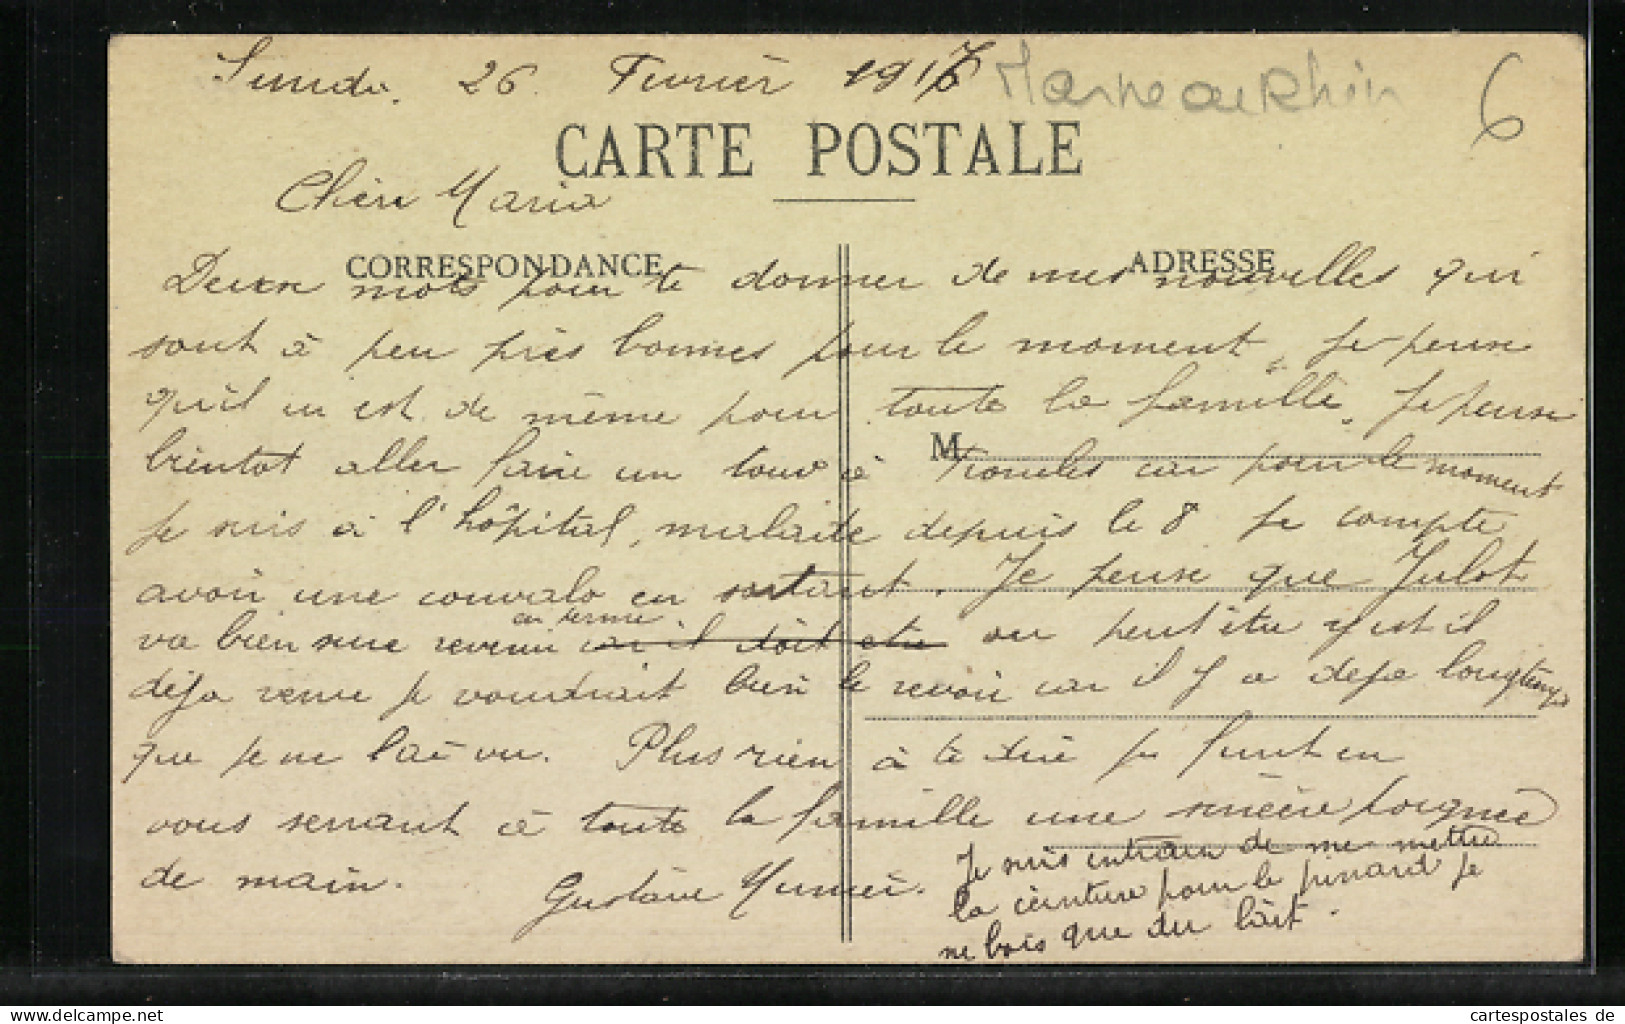 Lundi. 26 Fevrier 1917 Marne au Rhin 6
CARTE POSTALE
Chère Maria
CORRESPONDANCE ADRESSE
Deux mots pour te donner de mes nouvelles qui
sont à peu près bonnes pour le moment, Je pense
qu'il en est de même pour toute la famille. Je pense
M
bientot aller faire un tour à car pour le moment
je suis à l'hôpital, malade depuis le 8 je compte
avoir une convalo en sortant. Je pense que Julot
en perme
va bien sure revenir car il doit etre ou peut être y est il
déja venu je voudrait bien le revoir car il y a deja longtemps
que je ne l'ai vu. Plus rien à te dire je finit en
vous serrant à toute la famille une sincère poignée
de main. Gustave
Je suis entrain de me mettre
la ceinture pour le pinard je
ne bois que du lait.
www.cartespostales.de
cartespostales de